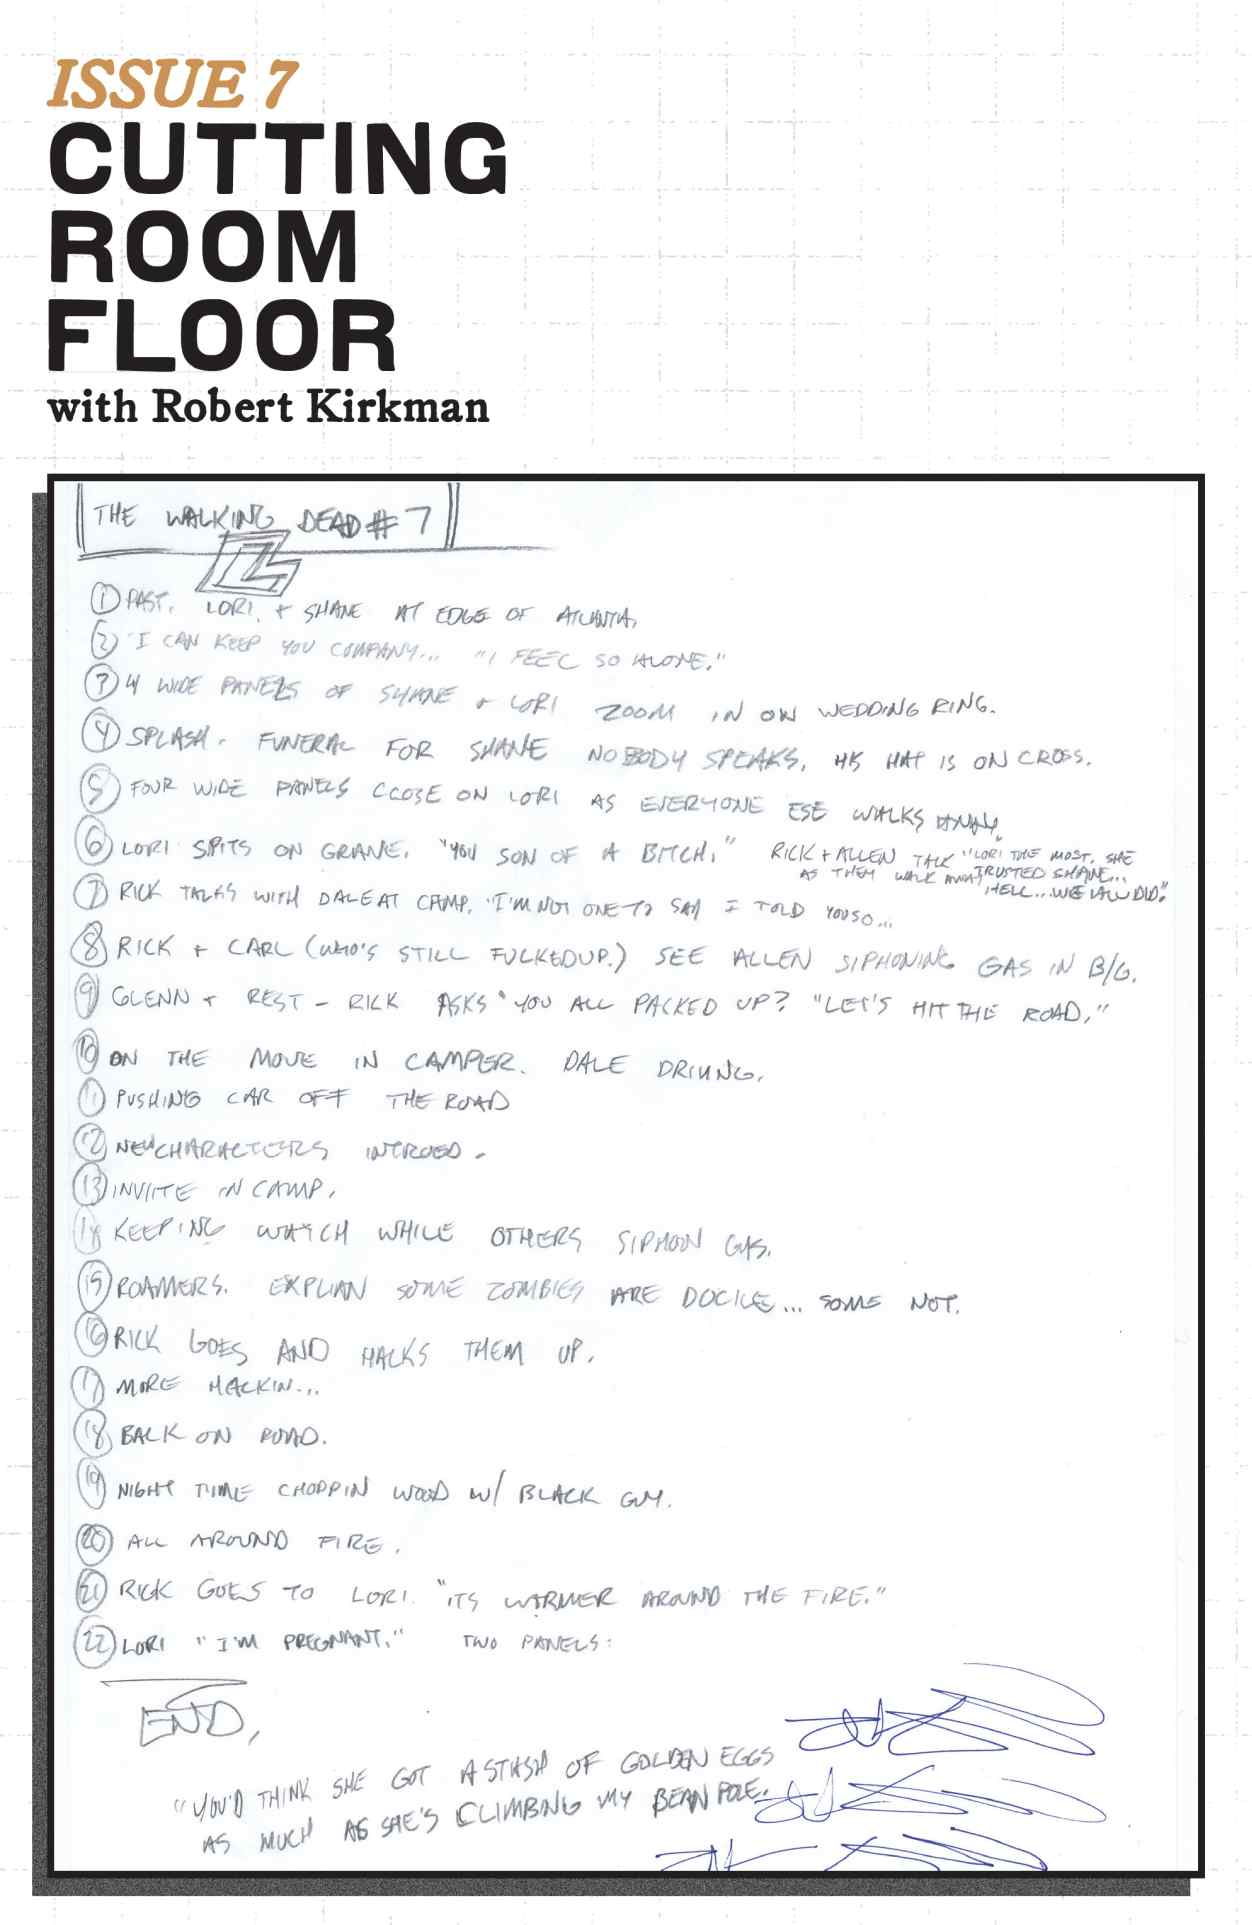 ISSUE 7
CUTTING
ROOM
FLOOR
with Robert Kirkman
THE WALKING DEAD #7
① PAST. LORI + SHANE AT EDGE OF ATLANTA.
② "I CAN KEEP YOU COMPANY... "I FEEL SO ALONE."
③ 4 WIDE PANELS OF SHANE + LORI ZOOM IN ON WEDDING RING.
④ SPLASH - FUNERAL FOR SHANE NOBODY SPEAKS. HIS HAT IS ON CROSS.
⑤ FOUR WIDE PANELS CLOSE ON LORI AS EVERYONE ESE WALKS AWAY.
⑥ LORI SPITS ON GRAVE. "YOU SON OF A BITCH." RICK + ALLEN TALK "LORI THE MOST. SHE
AS THEM WALK AWAY TRUSTED SHANE...
HELL... WE ALL DID."
⑦ RICK TALKS WITH DALE AT CAMP. "I'M NOT ONE TO SAY I TOLD YOU SO...
⑧ RICK + CARL (WHO'S STILL FUCKED UP.) SEE ALLEN SIPHONING GAS IN B/G.
⑨ GLENN + REST - RICK ASKS "YOU ALL PACKED UP? "LET'S HIT THE ROAD."
⑩ ON THE MOVE IN CAMPER. DALE DRIVING.
⑪ PUSHING CAR OFF THE ROAD
⑫ NEW CHARACTERS INTROED -
⑬ INVITE IN CAMP.
⑭ KEEPING WATCH WHILE OTHERS SIPHON GAS.
⑮ ROAMERS. EXPLIAN SOME ZOMBIES ARE DOCILE... SOME NOT.
⑯ RICK GOES AND HACKS THEM UP.
⑰ MORE HACKIN...
⑱ BACK ON ROAD.
⑲ NIGHT TIME CHOPPIN WOOD W/ BLACK GUY.
⑳ ALL AROUND FIRE.
㉑ RICK GOES TO LORI. "ITS WARMER AROUND THE FIRE."
㉒ LORI "I'M PREGNANT." TWO PANELS:
END.
"YOU'D THINK SHE GOT A STASH OF GOLDEN EGGS
AS MUCH AS SHE'S CLIMBING MY BEAN POLE.